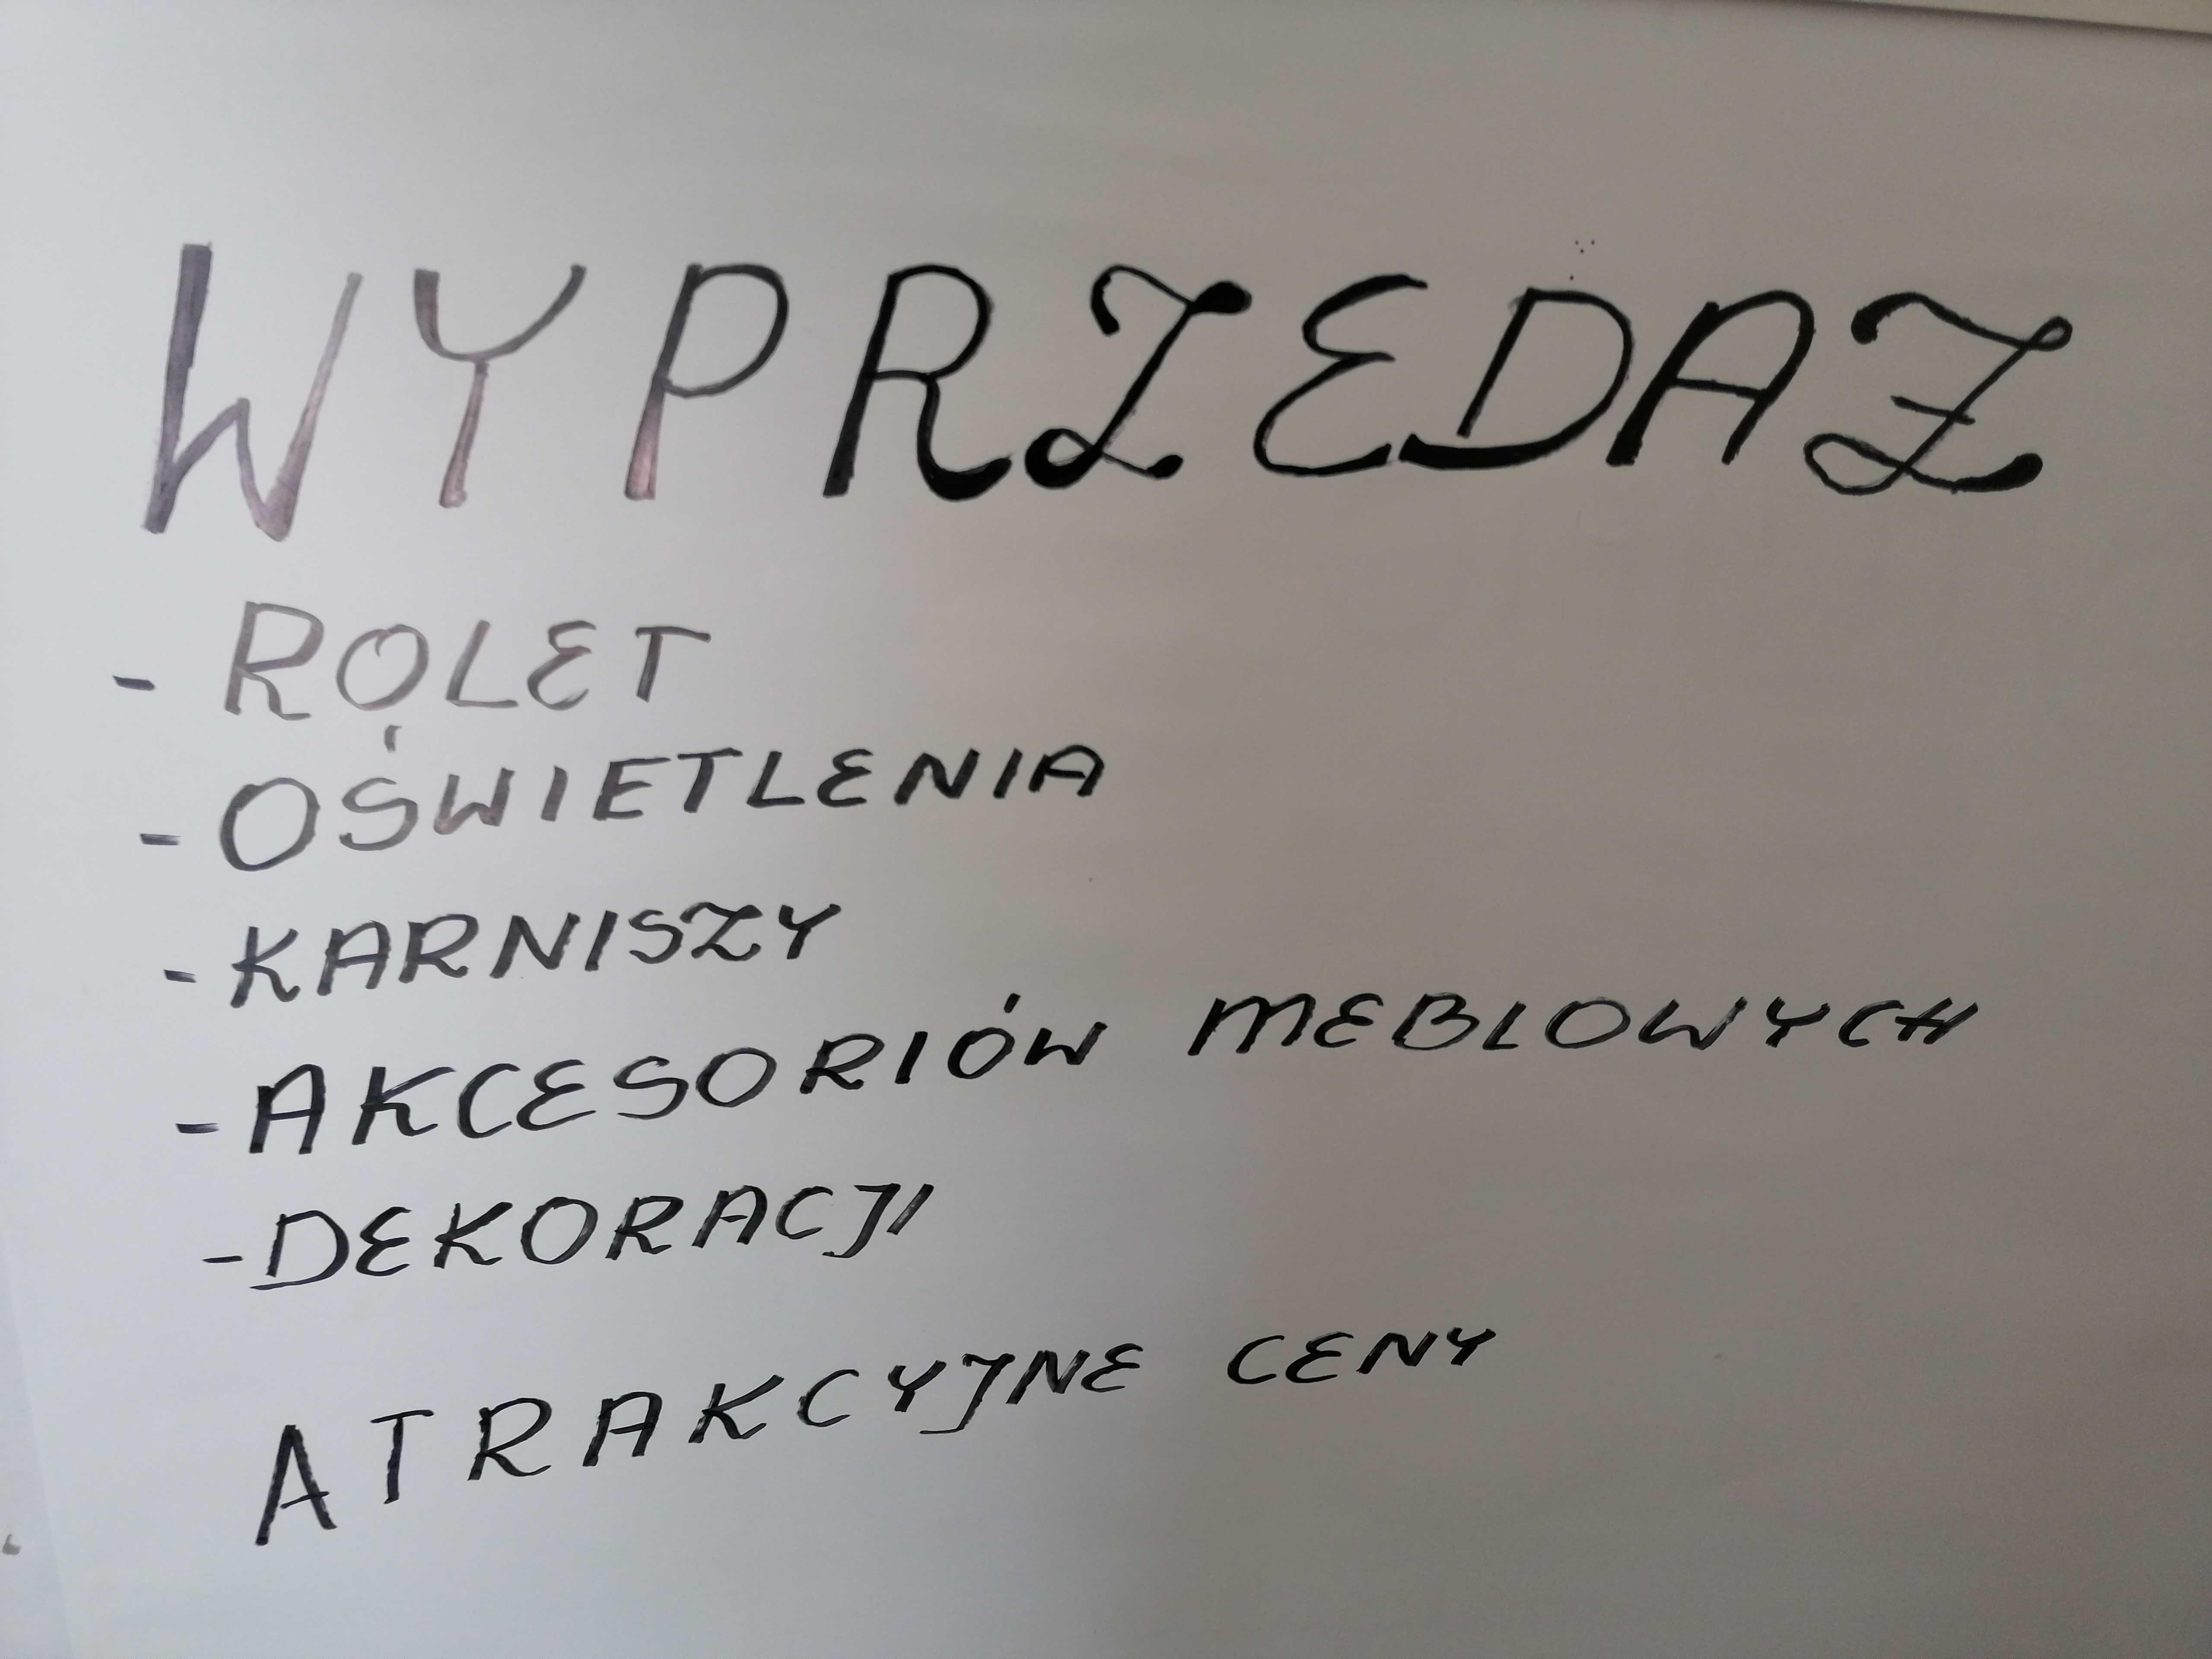 WYPRZEDAŻ
- ROLET
- OŚWIETLENIA
- KARNISZY
- AKCESORIÓW MEBLOWYCH
- DEKORACJI
ATRAKCYJNE CENY